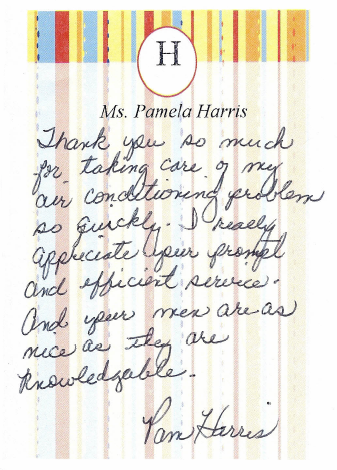 H
Ms. Pamela Harris
Thank you so much
for taking care of my
air conditioning problem
so quickly. I really
appreciate your prompt
and efficient service.
And your men are as
nice as they are
knowledgable.
Pam Harris